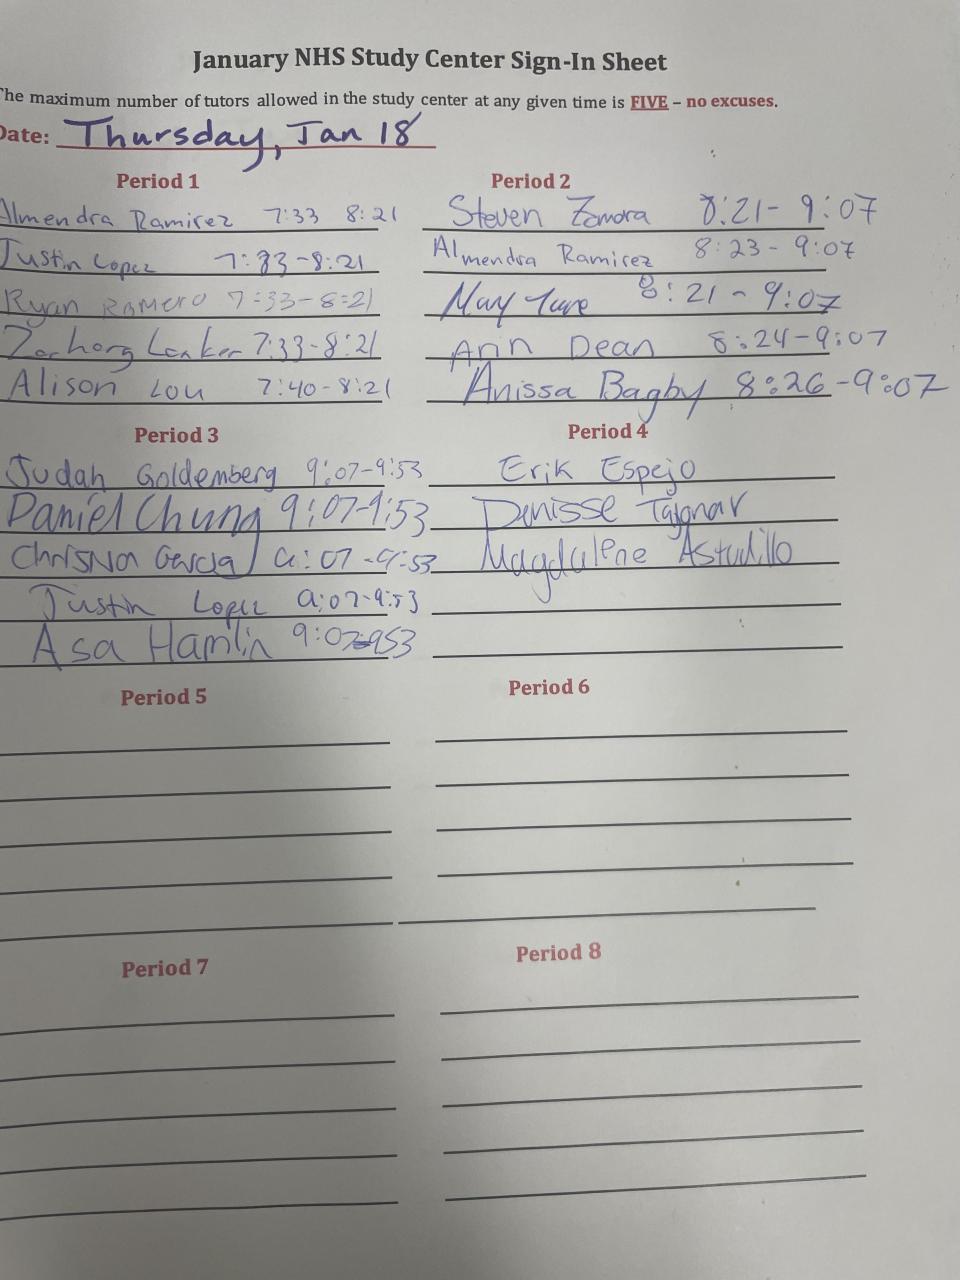 January NHS Study Center Sign-In Sheet
The maximum number of tutors allowed in the study center at any given time is FIVE – no excuses.
Date: Thursday, Jan 18
Period 1
Almendra Ramirez 7:33 8:21
Justin Lopez 7:33-8:21
Ryan Romero 7:33-8:21
7:33-8:21
Alison Lou 7:40-8:21
Period 2
Steven Zamora 8:21- 9:07
Almendra Ramirez 8:23-9:07
May 8:21-9:07
Arin Dean 8:24-9:07
Anissa Bagby 8:26-9:07
Period 3
Judah Goldemberg 9:07-9:53
Daniel Chung 9:07-9:53
Garcia 9:07-9:53
Justin Lopez 9:07-9:53
Asa Hamlin 9:07-953
Period 4
Erik Espejo
Denisse
Magdalene Astudillo
Period 5
Period 6
Period 7
Period 8